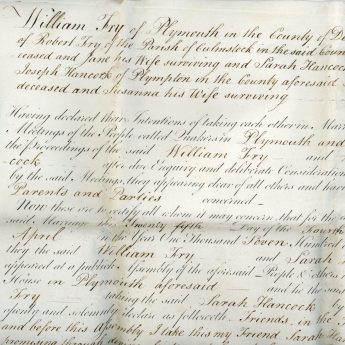 William Fry of Plymouth in the County of De
of Robert Fry of the Parish of Culmstock in the said Coun
ceased and Jane his Wife surviving and Sarah Hancoc
Joseph Hancock of Plympton in the County aforesaid
deceased and Susanna his Wife surviving
Having declared their Intentions of taking each other in Marr
Meetings of the People called Quakers in Plymouth and
the Proceedings of the said William Fry and
cock after due Enquiry and deliberate Consideration
by the said Meetings, they appearing clear of all others and have
Parents and Parties concerned
Now these are to certify all whom it may concern, that for the
said Marriage, this Twenty fifth Day of the Fourth
April in the Year One Thousand Seven Hundred
they the said William Fry and Sarah
appeared at a publick Assembly of the aforesaid People & others
House in Plymouth aforesaid and he the said
Fry taking the said Sarah Hancock by
openly and solemnly declare as followeth Friends, in the
and before this Assembly I take this my Friend Sarah H
promising through